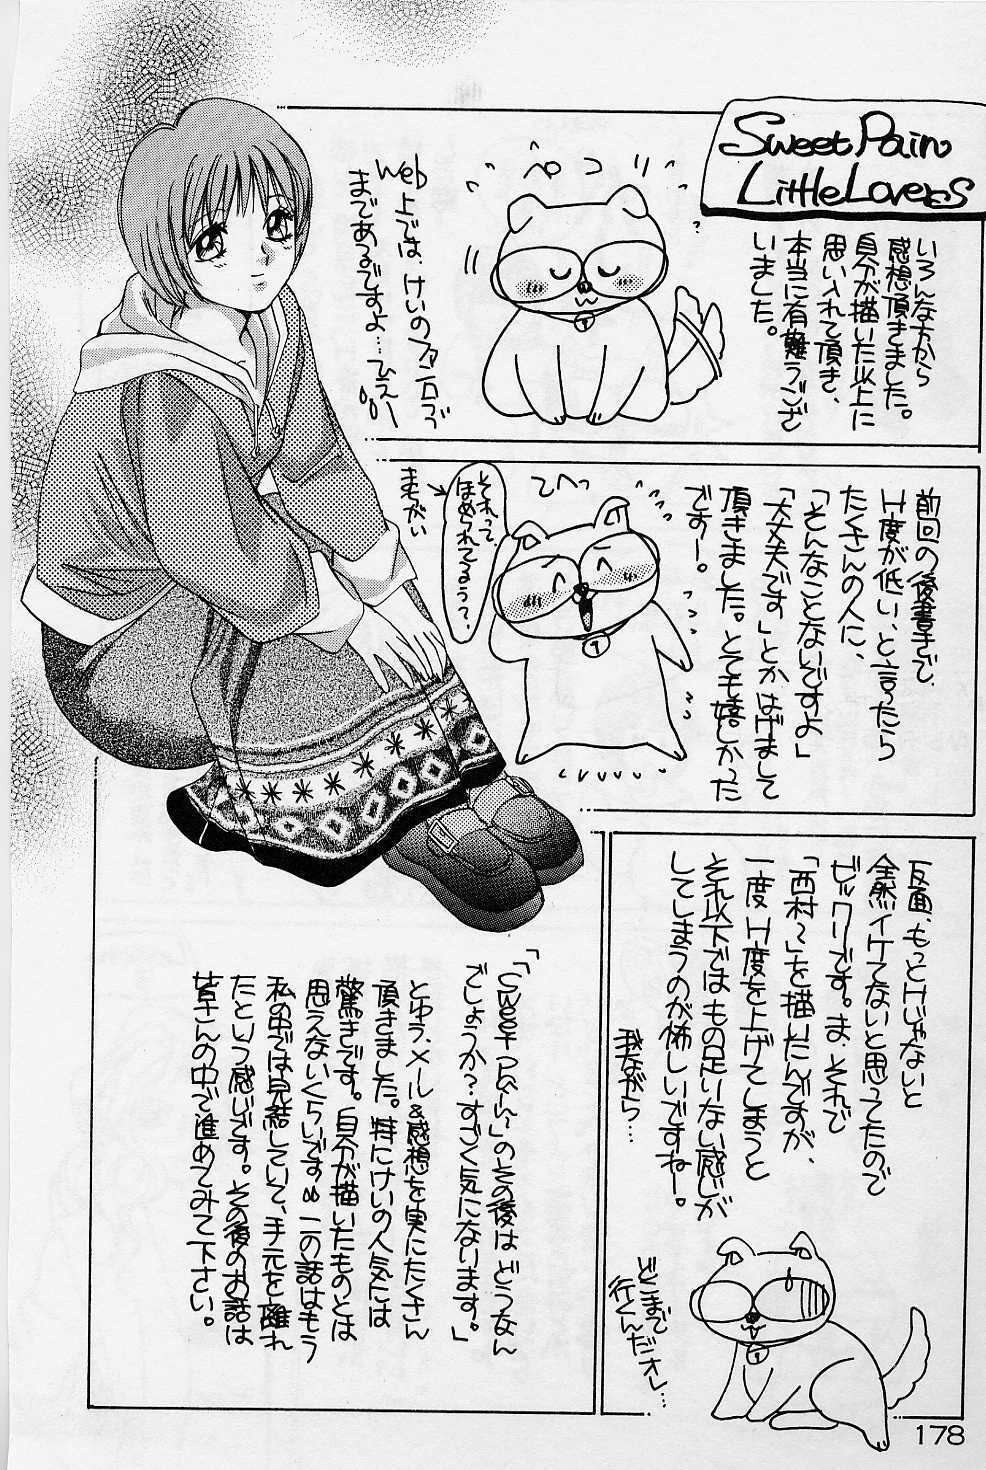 Sweet Pain
Little Lovers
いろんな方から
感想頂きました。
自分が描いた以上に
思い入れて頂き、
本当に有難うござ
いました。
ペコリ
Web上では、けいのファン石づ
まであるですよ…ひえー
前回の後書きで、
H度が低い、と言ったら
たくさんの人に、
「そんなことないですよ」
「大丈夫です」とかはげまして
頂きました。とても嬉しかった
でずー。
てへっ
それって、
ほめられてるう?、
まちがい
反面、もっとHじゃないと
全然イケてないと思ってたので
ビックリです。ま、それで
「西村〜」を描いたんですが、
一度H度を上げてしまうと
それ以下ではもの足りない感じが
してしまうのが怖しいですねー。
我ながら…
どこまで
行くんだオレ…
「「Sweet Pain〜」のその後はどうなん
でしょうか?すごく気になります。」
とゆう、メール&感想を実にたくさん
頂きました。特にけいの人気には
驚きです。自分が描いたものとは
思えないくらいです。この話はもう
私の中では完結していて、手元を離れ
たという感じです。その後のお話は
皆さんの中で進めてみて下さい。
178